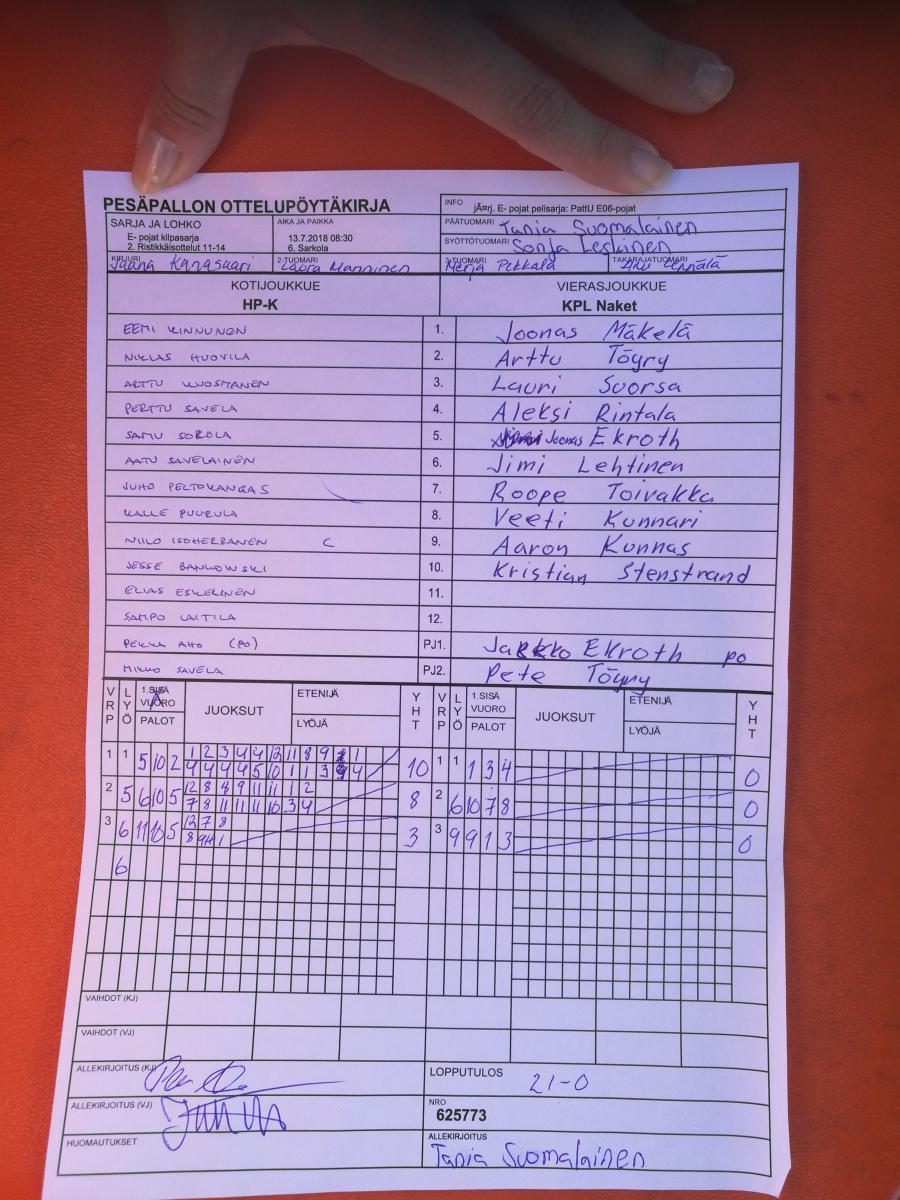 PESÄPALLON OTTELUPÖYTÄKIRJA
INFO jÄ¤rj. E- pojat pelisarja: PattU E06-pojat
SARJA JA LOHKO
E- pojat kilpasarja
2. Ristikkäisottelut 11-14
AIKA JA PAIKKA
13.7.2018 08:30
6. Sarkola
PÄÄTUOMARI Tania Suomalainen
SYÖTTÖTUOMARI Sonja Leskinen
KIRJURI Jaana Kanasaari
2-TUOMARI Laura Manninen
3-TUOMARI Merja Pekkala
TAKARAJATUOMARI
KOTIJOUKKUE
HP-K
VIERASJOUKKUE
KPL Naket
EEMI KINNUNEN 1. Joonas Mäkelä
NIKLAS HUOVILA 2. Arttu Töyry
ARTTU KUOSMANEN 3. Lauri Suorsa
PERTTU SAVELA 4. Aleksi Rintala
SAMU SOROLA 5. Joonas Ekroth
AATU SAVELAINEN 6. Jimi Lehtinen
JUHO PELTOKANGAS 7. Roope Toivakka
KALLE PUURULA 8. Veeti Kunnari
NIILO ISOHERRANEN C 9. Aaron Kunnas
JESSE BANKOWSKI 10. Kristian Stenstrand
ELIAS ESKELINEN 11.
SAMPO LAITILA 12.
PEKKA AHO (PO) PJ1. Jarkko Ekroth po
MIKKO SAVELA PJ2. Pete Töyry
VRP LYÖ 1.SISÄ VUORO PALOT JUOKSUT ETENIJÄ LYÖJÄ YHT VRP LYÖ 1.SISÄ VUORO PALOT JUOKSUT ETENIJÄ LYÖJÄ YHT
1 1 5 10 2 1 2 3 4 4 12 11 8 9 1 10 1 1 1 3 4 0
4 4 4 4 5 10 1 1 3 4
2 5 6 10 5 12 8 8 9 11 11 1 2 8 2 6 10 7 8 0
7 8 11 11 11 10 3 4
3 6 11 10 5 12 7 8 3 3 9 9 1 3 0
8 9 1
6
VAIHDOT (KJ)
VAIHDOT (VJ)
ALLEKIRJOITUS (KJ)
LOPPUTULOS 21-0
ALLEKIRJOITUS (VJ)
NRO
625773
HUOMAUTUKSET
ALLEKIRJOITUS
Tania Suomalainen